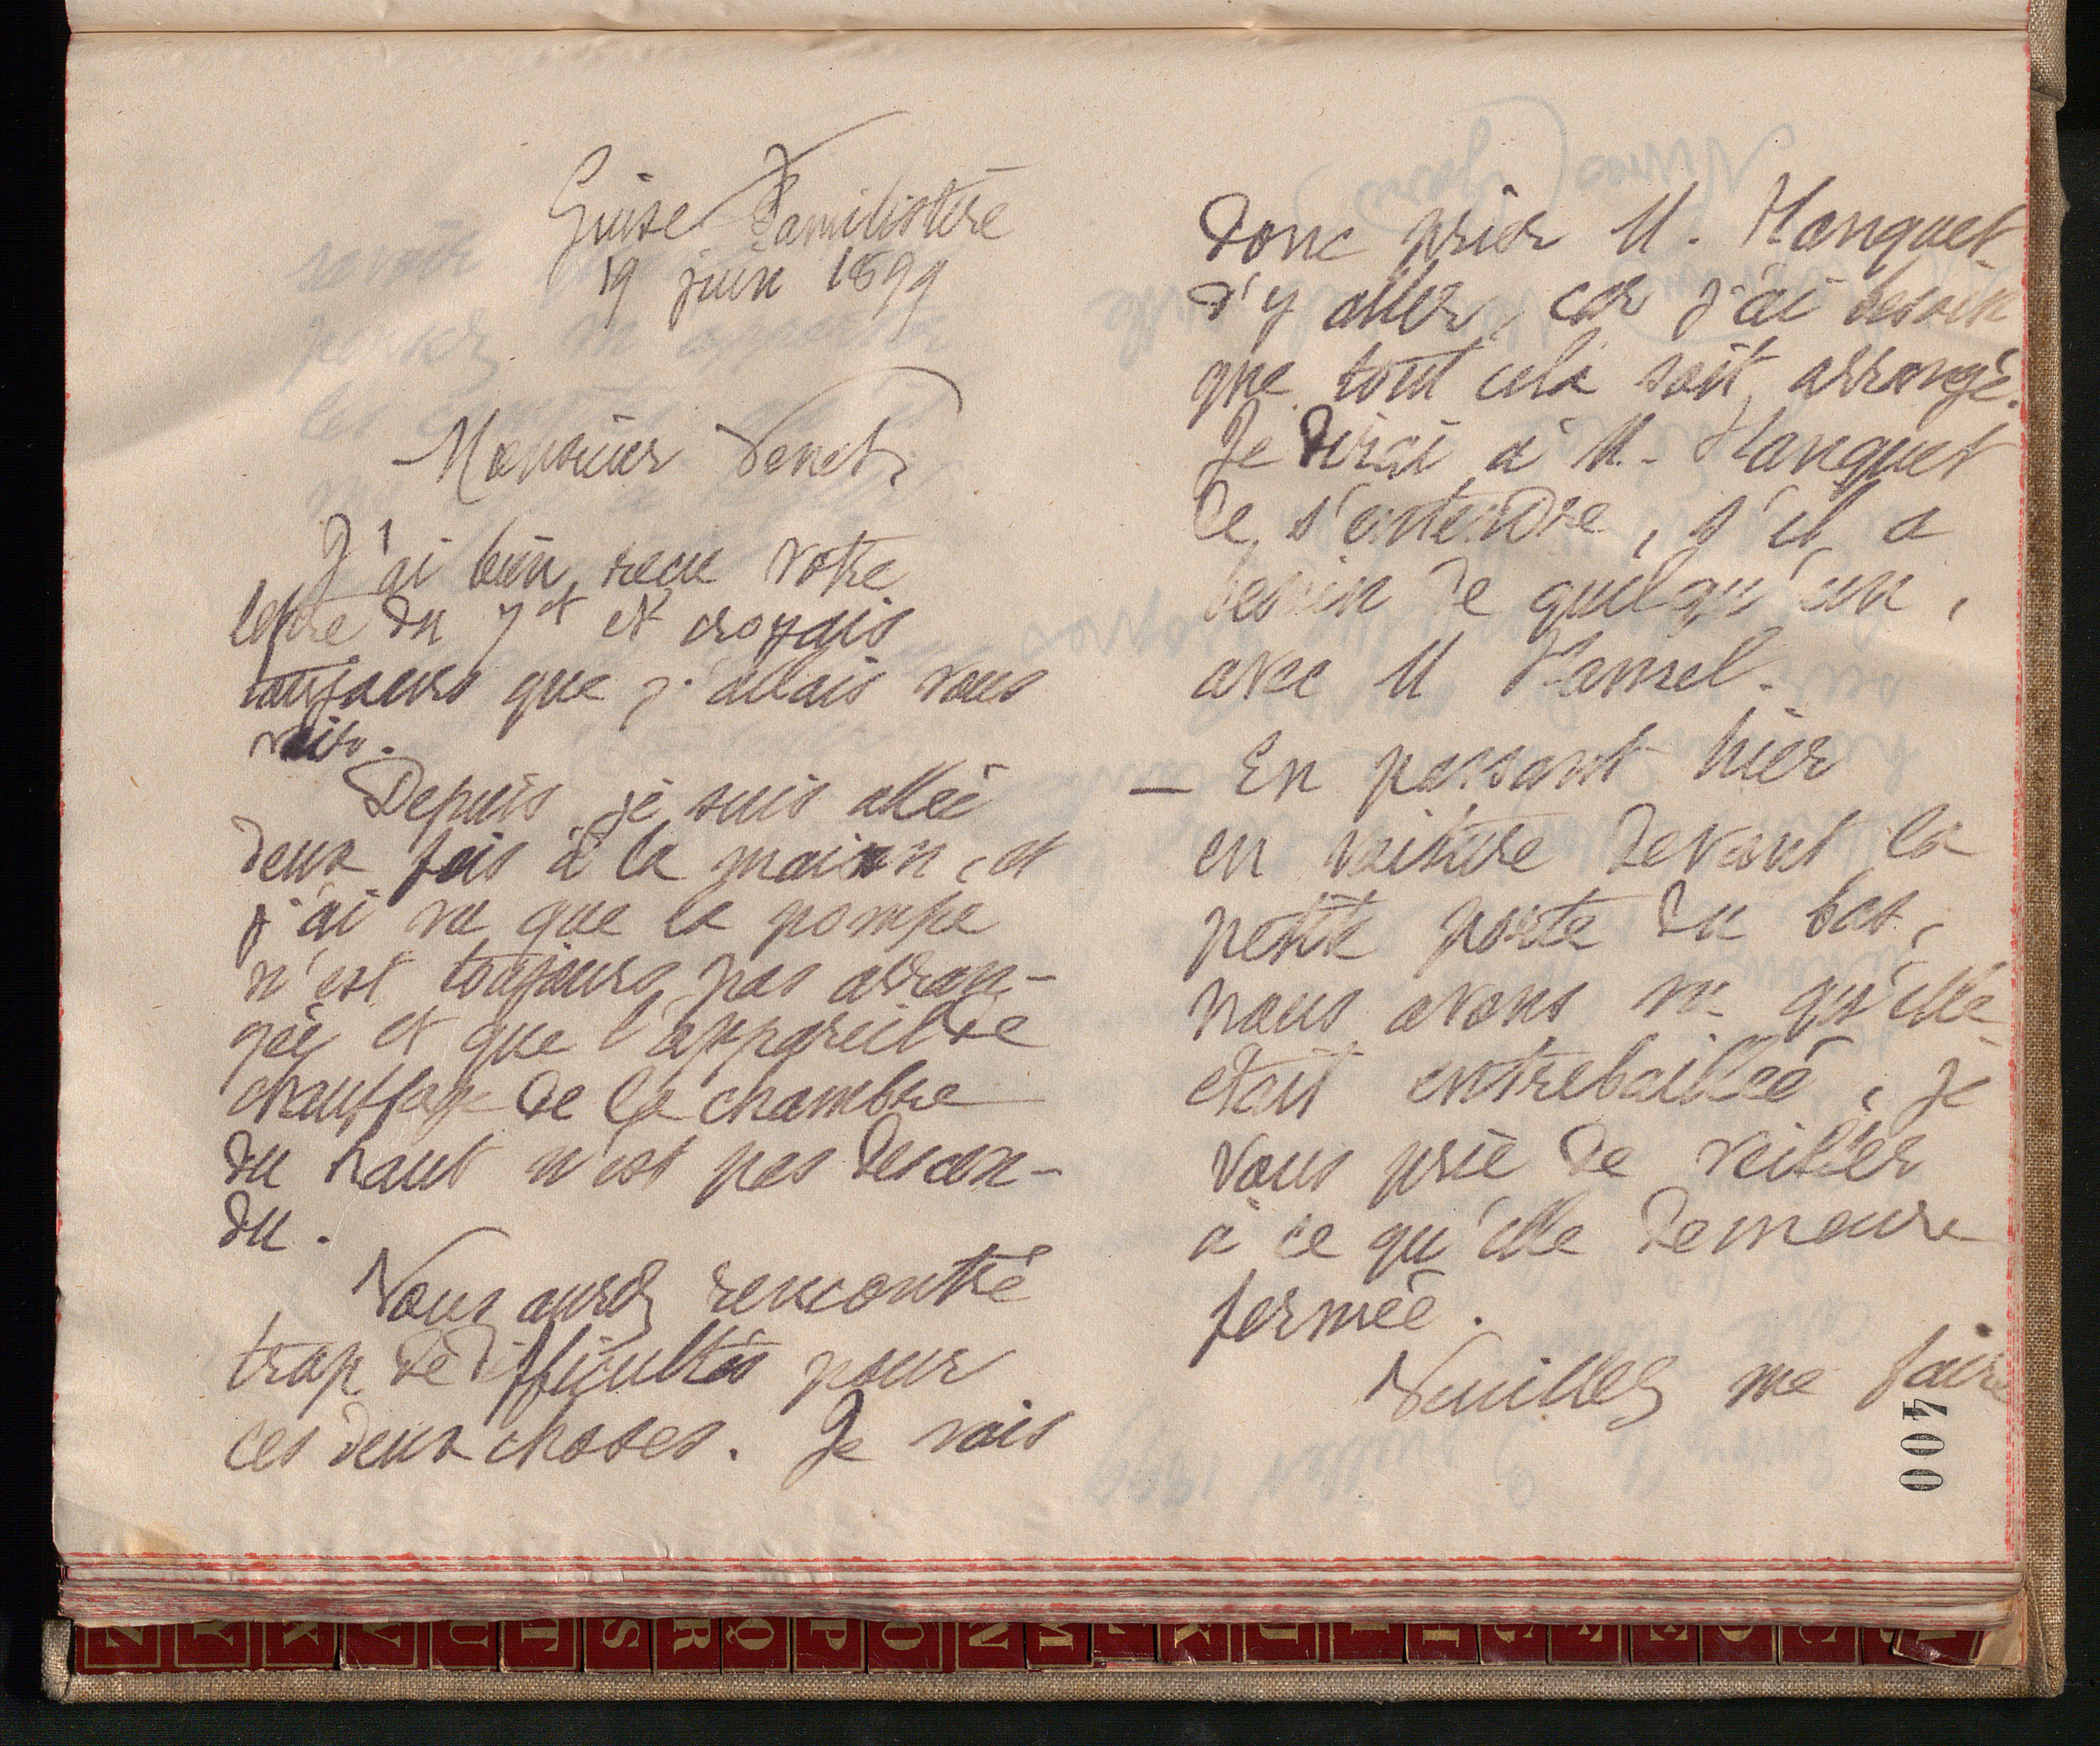 Guise Familistère
19 juin 1899
Monsieur Venet,
J'ai bien reçu votre
lettre du 7 et et croyais
toujours que j'allais vous
voir.
Depuis je suis allée
deux fois à la maison, et
j'ai vu que la pompe
n'est toujours pas arran-
gée et que l'appareil de
chauffage de la chambre
du haut n'est pas descen-
du.
Vous aurez rencontré
trop de difficultés pour
ces deux choses. Je vais
donc prier M. Hanquet
d'y aller, car j'ai besoin
que tout cela soit arrangé.
Je dirai à M. Hanquet
de s'entendre, s'il a
besoin de quelqu'un,
avec M Hamel.
— En passant hier
en voiture devant la
petite porte du bas,
nous avons vu qu'elle
était entrebaillée, je
vous prie de veiller
à ce qu'elle demeure
fermée.
Veuillez me faire
400
Z Y X V U T S R Q P O N M L K J I H G F E D C B